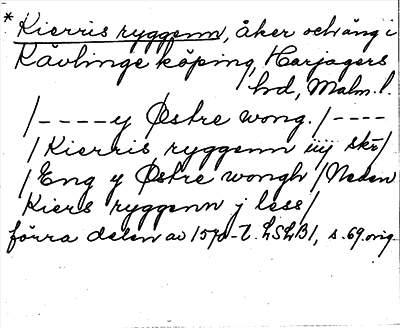 * Kierris ryggenn, åker och äng i
Kävlinge köping, Harjagers
hd, Malm. l.
/----y Østre wong. /----
/Kierris ryggenn iiij skr/
/Eng y Østre wongh/Neden
Kiers ryggenn j less/
förra delen av 1570-t. LSLB1, s. 69 orig.